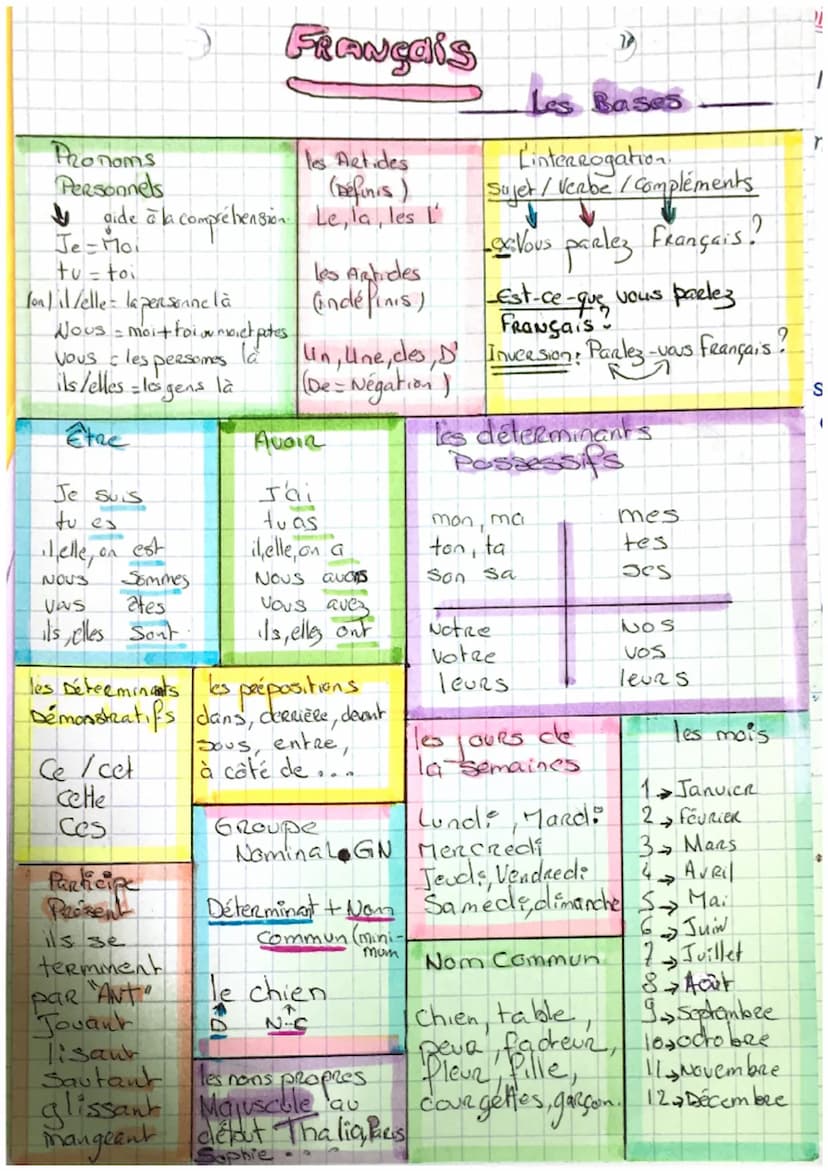 Français
Les Bases
Pronoms
Personnels
↓ aide à la compréhension
Je = Moi
tu = toi
(on) il/elle = la personne là
Nous = moi + toi ou moi et potes
Vous = les personnes là
ils/elles = les gens là
les Articles
(Définis)
Le, la, les L'
les Articles
(indéfinis)
Un, Une, des, D'
(De = Négation)
L'interrogation
Sujet / Verbe / Compléments
ex: Vous parlez Français ?
Est-ce-que vous parlez
Français ?
Inversion : Parlez-vous Français ?
Être
Je suis
tu es
il, elle, on est
Nous Sommes
Vous êtes
ils, elles Sont
Avoir
J'ai
tu as
il, elle, on a
Nous avons
Vous avez
ils, elles ont
les déterminants
Possessifs
mon, ma mes
ton, ta tes
son sa ses
Notre Nos
Votre vos
leurs leurs
les Déterminants
Démonstratifs
Ce / cet
cette
Ces
les prépositions
dans, derrière, devant
sous, entre,
à côté de ...
les jours de
la semaines
Lundi, Mardi
Mercredi
Jeudi, Vendredi
Samedi, dimanche
les mois
1 → Janvier
2 → Février
3 → Mars
4 → Avril
5 → Mai
6 → Juin
7 → Juillet
8 → Août
9 → Septembre
10 → octobre
11 → Novembre
12 → Décembre
Groupe
Nominal • GN
Déterminant + Nom
Commun (mini-
mum
le chien
D N-C
Participe
Présent
ils se
terminent
par "ANT"
Jouant
lisant
Sautant
glissant
mangeant
Nom Commun
Chien, table,
peur, facteur,
fleur, fille,
courgettes, garçon.
les noms propres
Majuscule au
début Thalia, Paris
Sophie ...